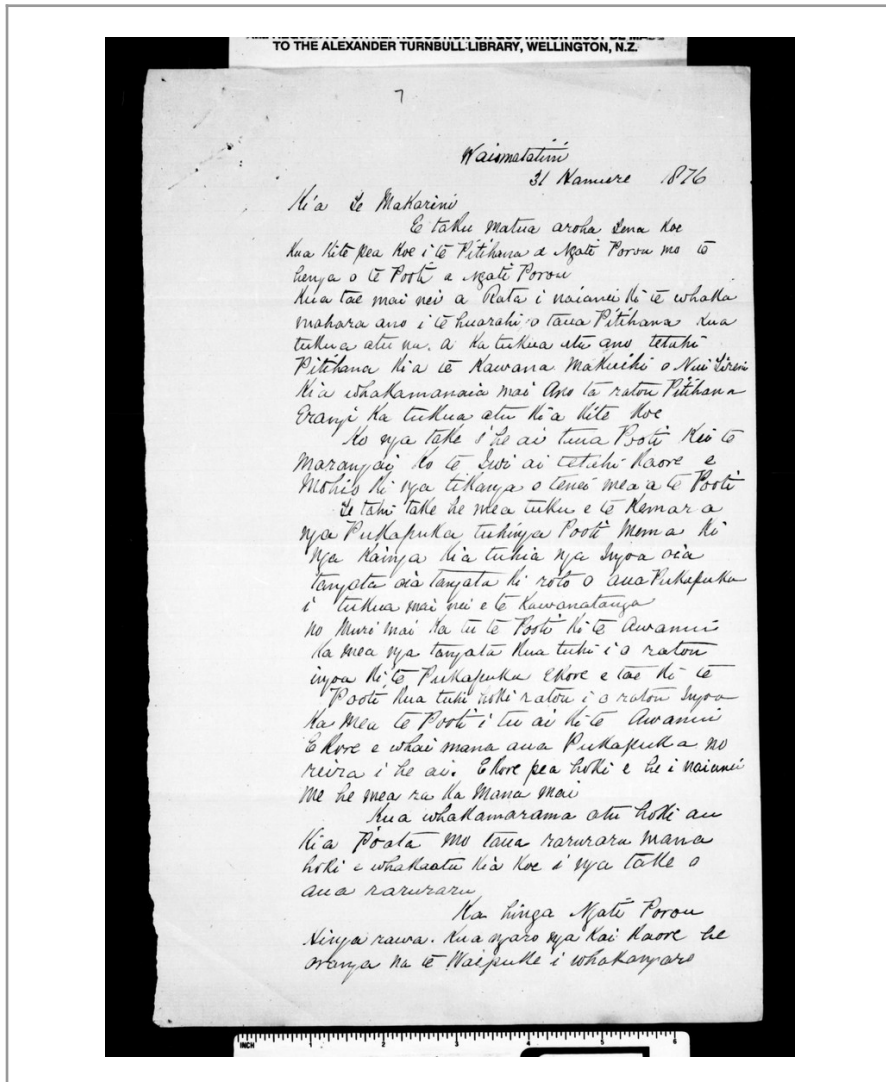 TO THE ALEXANDER TURNBULL LIBRARY, WELLINGTON, N.Z.
7
Waiomatatini
31 Hanuere 1876
Ki a Te Makarini
E taku Matua aroha Tena koe
Kua kite pea koe i te Pitihana a Ngati Porou mo te
henga o te Pooti a Ngati Porou
Kua tae mai nei a Rata i naianei ki te whaka
mahara ano i te huarahi o taua Pitihana kua
tukua atu na. a ka tukua atu ano tetahi
Pitihana kia te Kawana Makuihi o Niu Tireni
kia whakamanaia mai Ano ta ratou Pitihana
Erangi ka tukua atu kia kite koe
Ko nga take i he ai tuua Pooti kei te
Marangai ko te Iwi ai tetahi kaore e
Mohio ki nga tikanga o tenei mea a te Pooti
Te tahi take he mea tuku e te Kemara
nga Pukapuka tuhinga Pooti Mema ki
nga Kainga kia tuhia nga Ingoa oia
tangata oia tangata ki roto o aua Pukapuka
i tukua mai nei e te Kawanatanga
no Muri mai ka tu te Pooti ki te Awanui
ka mea nga tangata kua tuhi i o ratou
ingoa ki te Pukapuka Ekore e tae ki te
Pooti kua tuhi hoki ratou i o ratou Ingoa
Ka Mea te Pooti i tu ai ki te Awanui
Ekore e whai mana aua Pukapuka no
reira i he ai. Ekore pea hoki e he i naianei
Me he mea ra ka Mana mai
Kua whakamarama atu hoki au
kia Poata Mo taua raruraru Mana
hoki e whakaatu kia koe i nga take o
aua raruraru
Ka hinga Ngati Porou
Hinga rawa. Kua ngaro nga Kai kaore he
oranga na te Waipuke i whakangaro
INCH 1 2 3 4 5 6